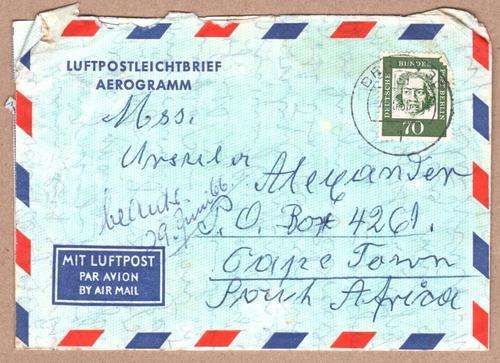 LUFTPOSTLEICHTBRIEF
AEROGRAMM
DEUTSCHE BUNDESPOST BERLIN
70
Mss.
Ursula Alexander
P. O. Box 4261.
Cape Town
South Africa
29. Juni 66
MIT LUFTPOST
PAR AVION
BY AIR MAIL